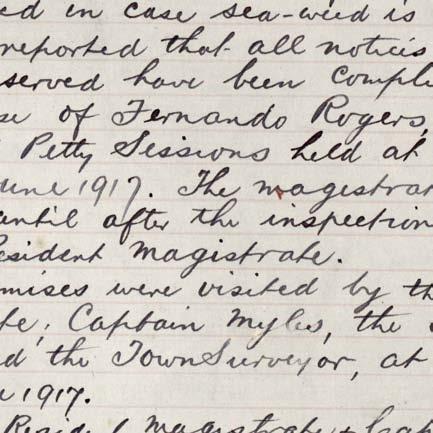 ed in case sea-weed is
reported that all notices
served have been compli
se of Fernando Rogers,
Petty Sessions held at
une 1917. The magestrat
until after the inspection
esident Magistrate.
mises were visited by th
te, Captain Myles, the
d the Town Surveyor, at
1917.
Magistrate + Cap